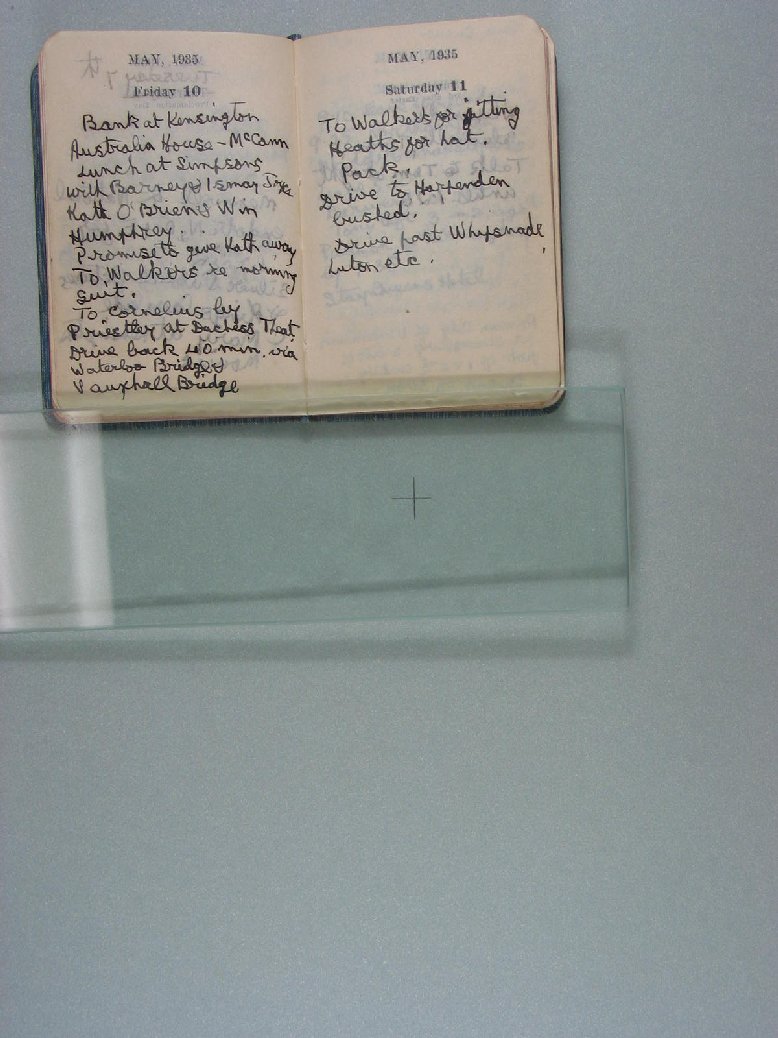 MAY, 1935
Friday 10
Bank at Kensington
Australia House - McCann
Lunch at Simpsons
with Barney & Ismay
Kath O'Brien & Win
Humphrey . .
Promise to give Kath away
To Walkers re morning
suit.
To Cornelius by
Priestley at Duchess Theat.
Drive back 40 min. via
Waterloo Bridge &
Vauxhall Bridge
MAY, 1935
Saturday 11
To Walkers for fitting
Heaths for hat.
Pack.
Drive to Harpenden
bushed.
Drive past Whipsnade,
Luton etc.